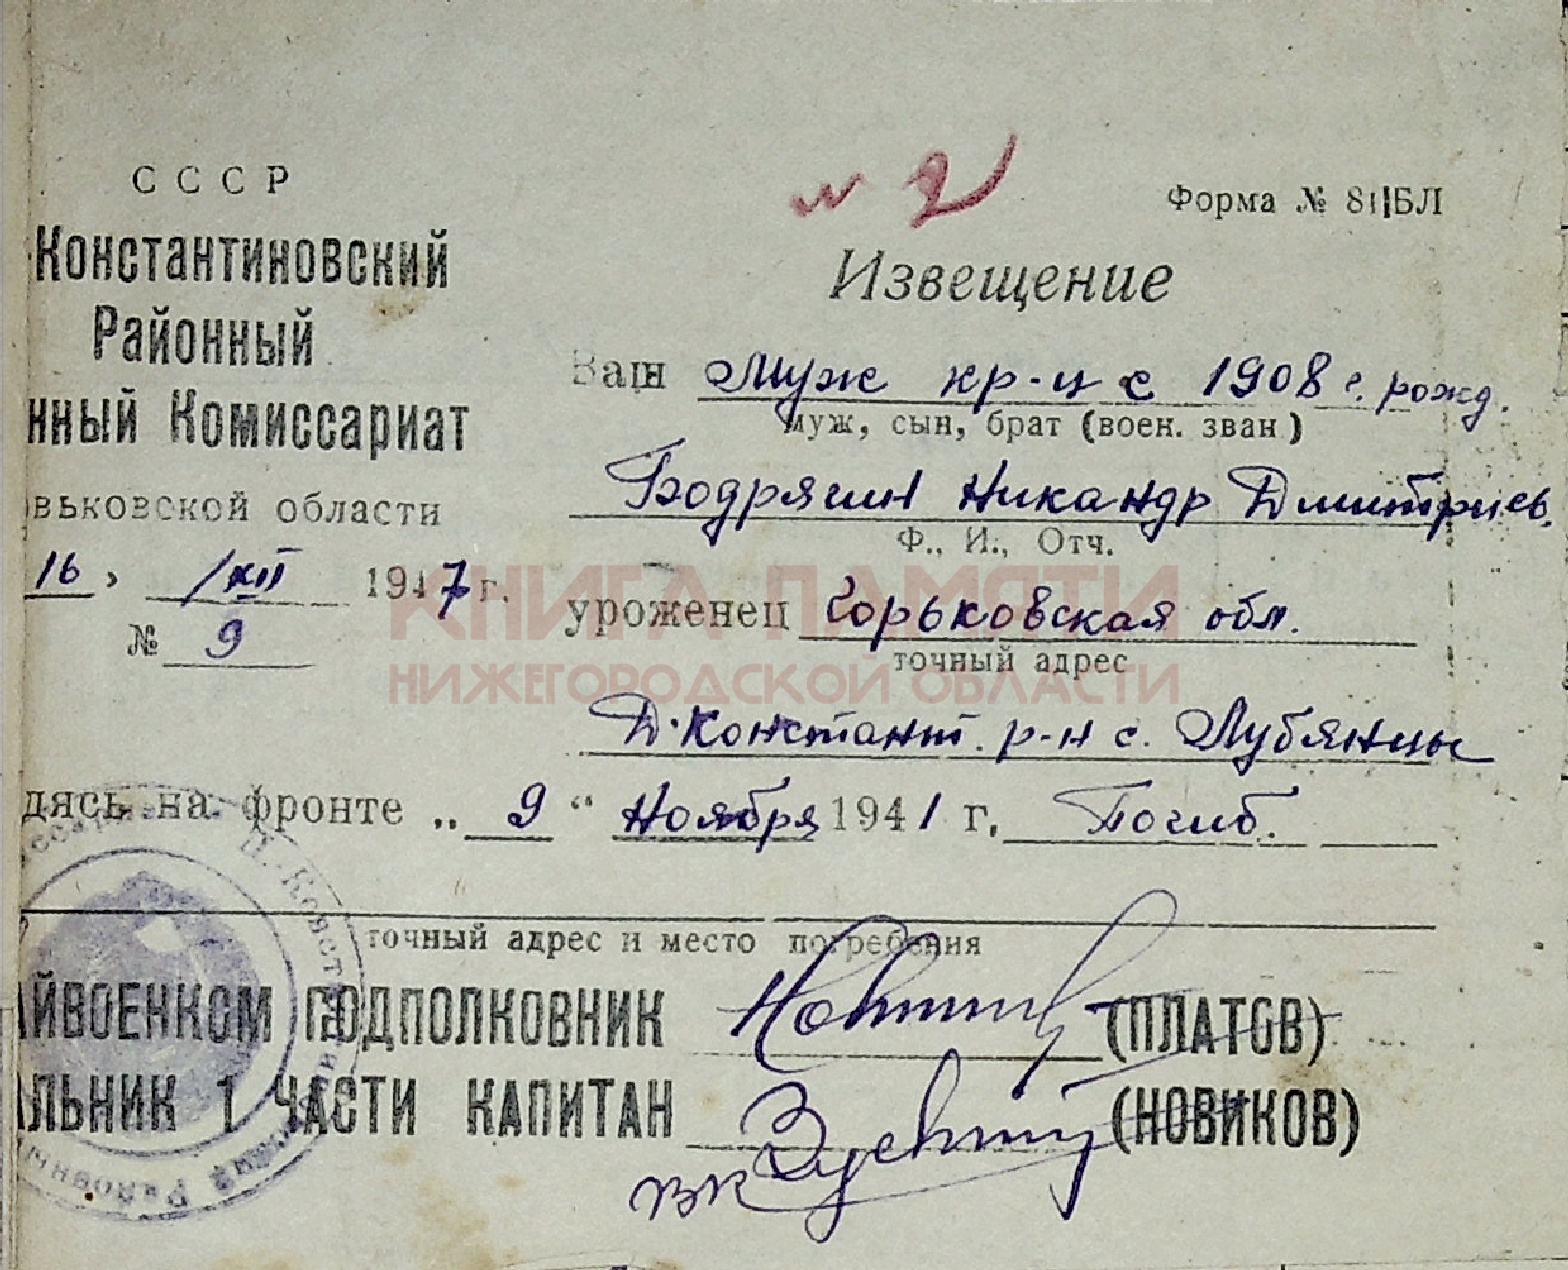 СССР
Константиновский
Районный
нный Комиссариат
овьковской области
16, /XII 1947 г.
№ 9
№ 2
Форма № 81|БЛ
Извещение
Ваш муж кр-ц с 1908 г. рожд.
муж, сын, брат (воен. зван)
Бодрягин Никандр Дмитриев.
Ф., И., Отч.
уроженец Горьковская обл.
точный адрес
Д. Констант. р-н с. Лубянцы
дясь на фронте „ 9 “ Ноября 1941 г. Погиб.
точный адрес и место погребения
АЙВОЕНКОМ ПОДПОЛКОВНИК (ПЛАТОВ)
АЛЬНИК 1 ЧАСТИ КАПИТАН (НОВИКОВ)
КНИГА ПАМЯТИ
НИЖЕГОРОДСКОЙ ОБЛАСТИ